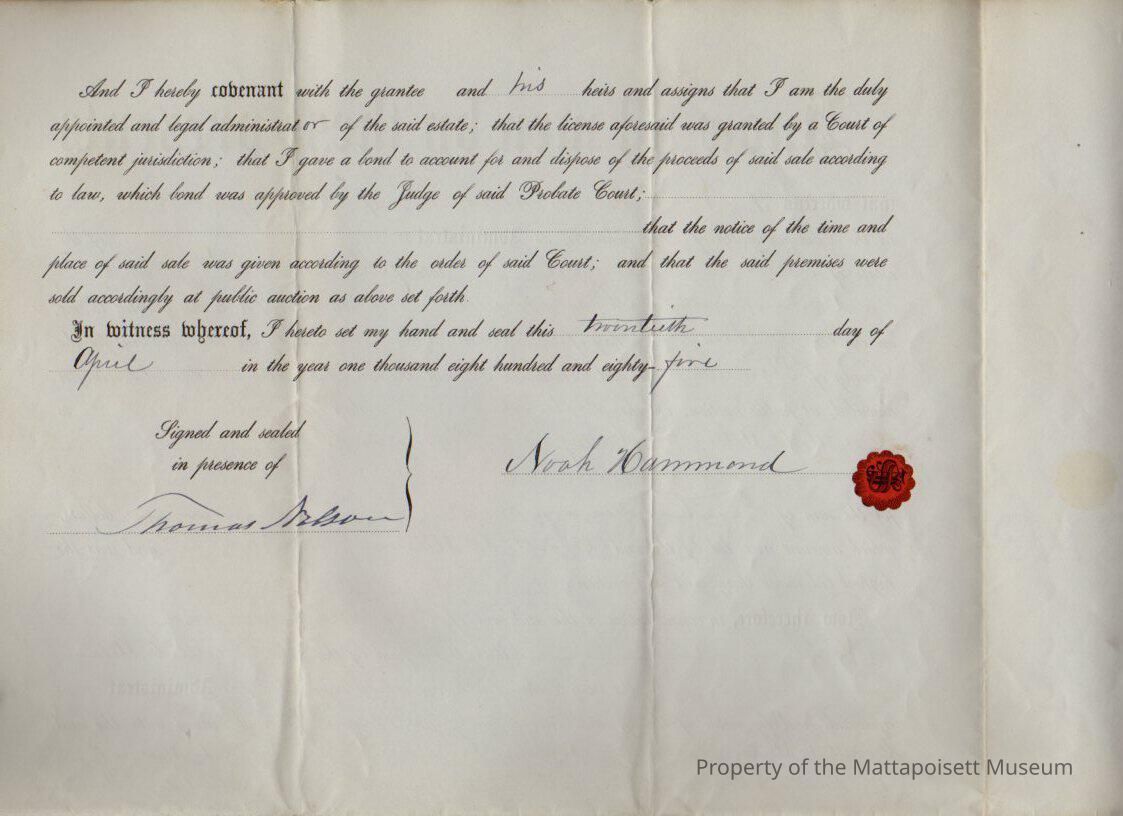 And I hereby covenant with the grantee and his heirs and assigns that I am the duly
appointed and legal administrator of the said estate; that the license aforesaid was granted by a Court of
competent jurisdiction; that I gave a bond to account for and dispose of the proceeds of said sale according
to law, which bond was approved by the Judge of said Probate Court;
that the notice of the time and
place of said sale was given according to the order of said Court; and that the said premises were
sold accordingly at public auction as above set forth.
In witness whereof, I hereto set my hand and seal this twentieth day of
April in the year one thousand eight hundred and eighty-five
Signed and sealed
in presence of
Noah Hammond
Thomas Nelson
Property of the Mattapoisett Museum